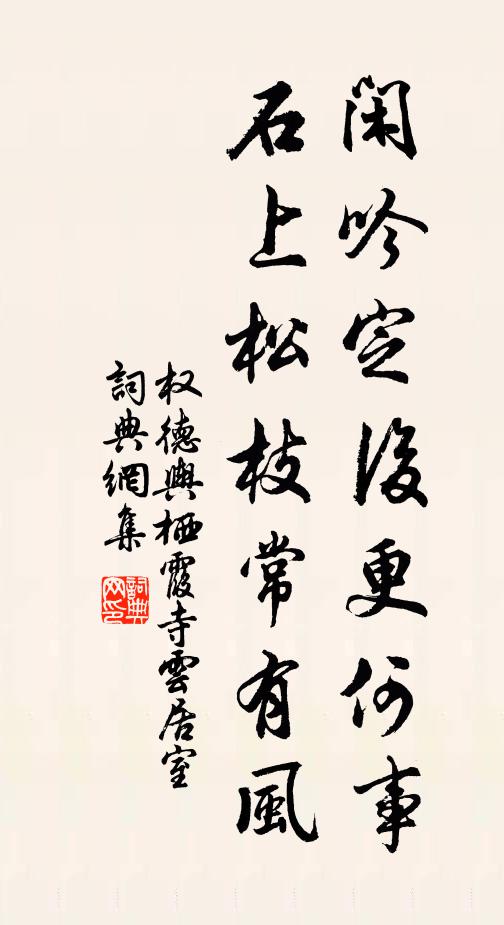 閑吟定後更何事
石上松枝常有風
权德輿栖霞寺雲居室
詞典網集
詞典網印